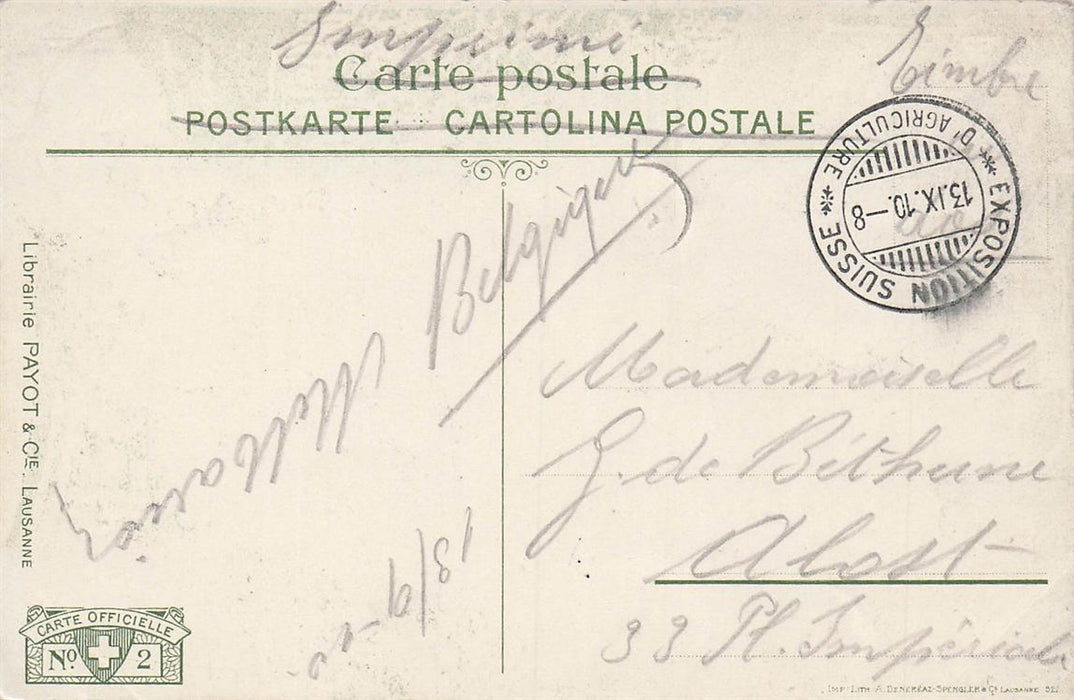 Imprimé
Carte postale
POSTKARTE CARTOLINA POSTALE
Timbre
EXPOSITION SUISSE
D'AGRICULTURE
13.IX.10.–8
Belgique
Mademoiselle
G. de Béthune
Alost
33 Pl. Impériale
13/9
Librairie PAYOT & CIE. LAUSANNE
CARTE OFFICIELLE
No 2
IMP. LITH. A. DENÉRÉAZ-SPENGLER & Cie LAUSANNE